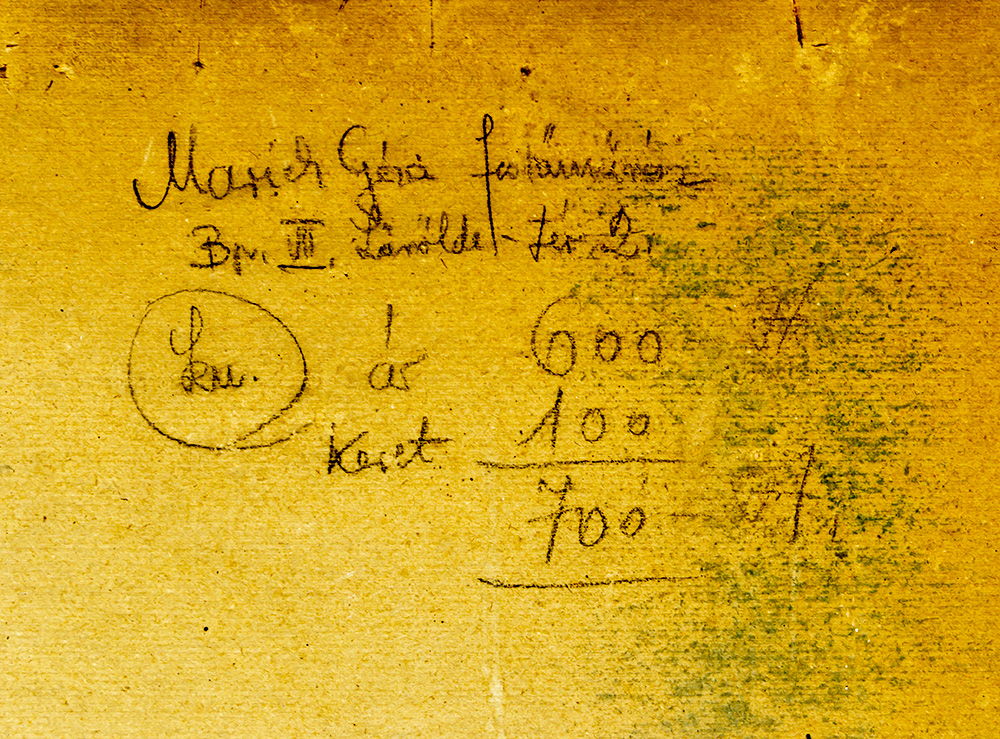 Marich Géza festőművész
Bp. VII. Lövölde-tér 2.
ár 600 Ft
Keret 100
700 - Ft